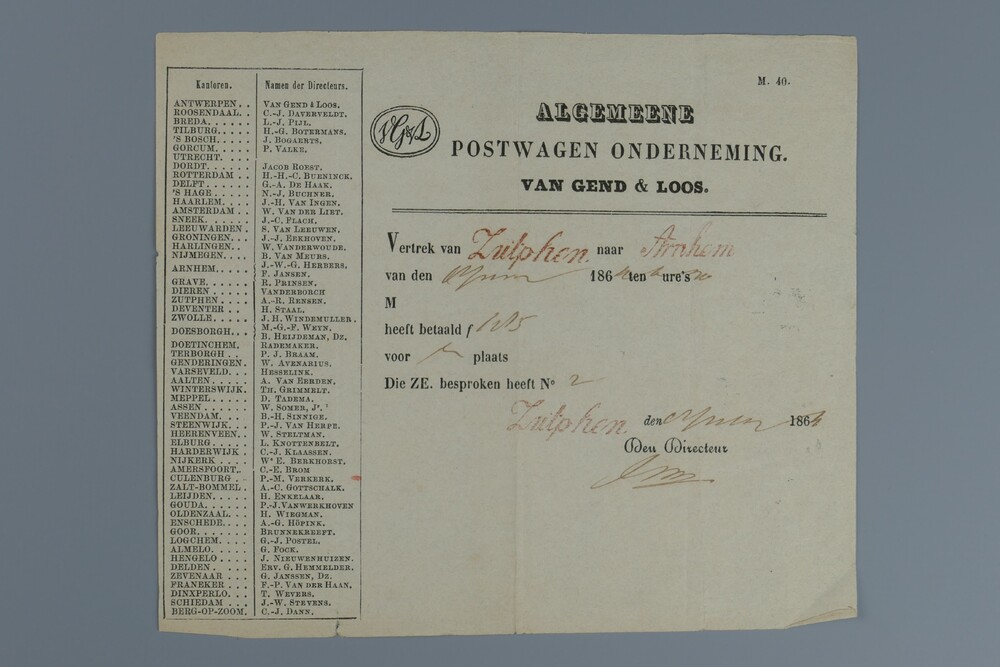 Kantoren. Namen der Directeurs.
ANTWERPEN. . VAN GEND & LOOS.
ROOSENDAAL. . C.-J. DAVERVELDT.
BREDA. . . . . . L.-J. PIJL.
TILBURG. . . . . H.-G. BOTERMANS.
'S BOSCH. . . . . J. BOGAERTS.
GORCUM. . . . . P. VALKE.
UTRECHT. . . .
DORDT. . . . . . JACOB ROEST.
ROTTERDAM . . H.-H.-C. BUENINCK.
DELFT . . . . . . G.-A. DE HAAK.
'S HAGE . . . . . N.-J. BUCHNER.
HAARLEM. . . . J.-H. VAN INGEN.
AMSTERDAM . . W. VAN DER LIET.
SNEEK. . . . . . J.-C. FLACH.
LEEUWARDEN . S. VAN LEEUWEN.
GRONINGEN. . . J.-J. EEKHOVEN.
HARLINGEN. . . W. VANDERWOUDE.
NIJMEGEN. . . . B. VAN MEURS.
ARNHEM. . . . . J.-W.-G. HERBERS.
F. JANSEN.
GRAVE. . . . . . R. PRINSEN.
DIEREN . . . . . VANDERBORCH
ZUTPHEN . . . . A.-R. RENSEN.
DEVENTER . . . H. STAAL.
ZWOLLE. . . . . J. H. WINDEMULLER.
DOESBORGH. . . M.-G.-F. WEYN.
B. HEIJDEMAN, DZ.
DOETINCHEM. RADEMAKER.
TERBORGH . . P. J. BRAAM.
GENDERINGEN. W. AVENARIUS.
VARSEVELD. . . HESSELINK.
AALTEN. . . . . A. VAN EERDEN.
WINTERSWIJK. TH. GRIMMELT.
MEPPEL. . . . . D. TADEMA.
ASSEN . . . . . . W. SOMER, Jr.
VEENDAM. . . B.-H. SINNIGE.
STEENWIJK. . . P.-J. VAN HERPE.
HEERENVEEN. . W. STELTMAN.
ELBURG. . . . . L. KNOTTENBELT.
HARDERWIJK . C.-J. KLAASSEN.
NIJKERK . . . . We E. BERKHORST.
AMERSFOORT. . C.-E. BROM
CULENBURG . . P.-M. VERKERK.
ZALT-BOMMEL . A.-C. GOTTSCHALK.
LEIJDEN. . . . . H. ENKELAAR.
GOUDA. . . . . . P.-J. VANWERKHOVEN
OLDENZAAL. . . H. WIEGMAN.
ENSCHEDE. . . . A.-G. HÖPINK.
GOOR. . . . . . . BRUNNEKREEFT.
LOGCHEM. . . . G.-J. POSTEL.
ALMELO. . . . . G. FOCK.
HENGELO . . . . J. NIEUWENHUIZEN.
DELDEN . . . . . ERV. G. HEMMELDER.
ZEVENAAR . . . G. JANSSEN, DZ.
FRANEKER . . . F.-P. VAN DER HAAN.
DINXPERLO. . . T. WEVERS.
SCHIEDAM . . . J.-W. STEVENS.
BERG-OP-ZOOM. C.-J. DANN.
M. 40.
vG&L
ALGEMEENE
POSTWAGEN ONDERNEMING.
VAN GEND & LOOS.
Vertrek van Zutphen naar Arnhem
van den 186 ten ure's
M
heeft betaald f
voor plaats
Die ZE. besproken heeft No 2
Zutphen den 186
Den Directeur